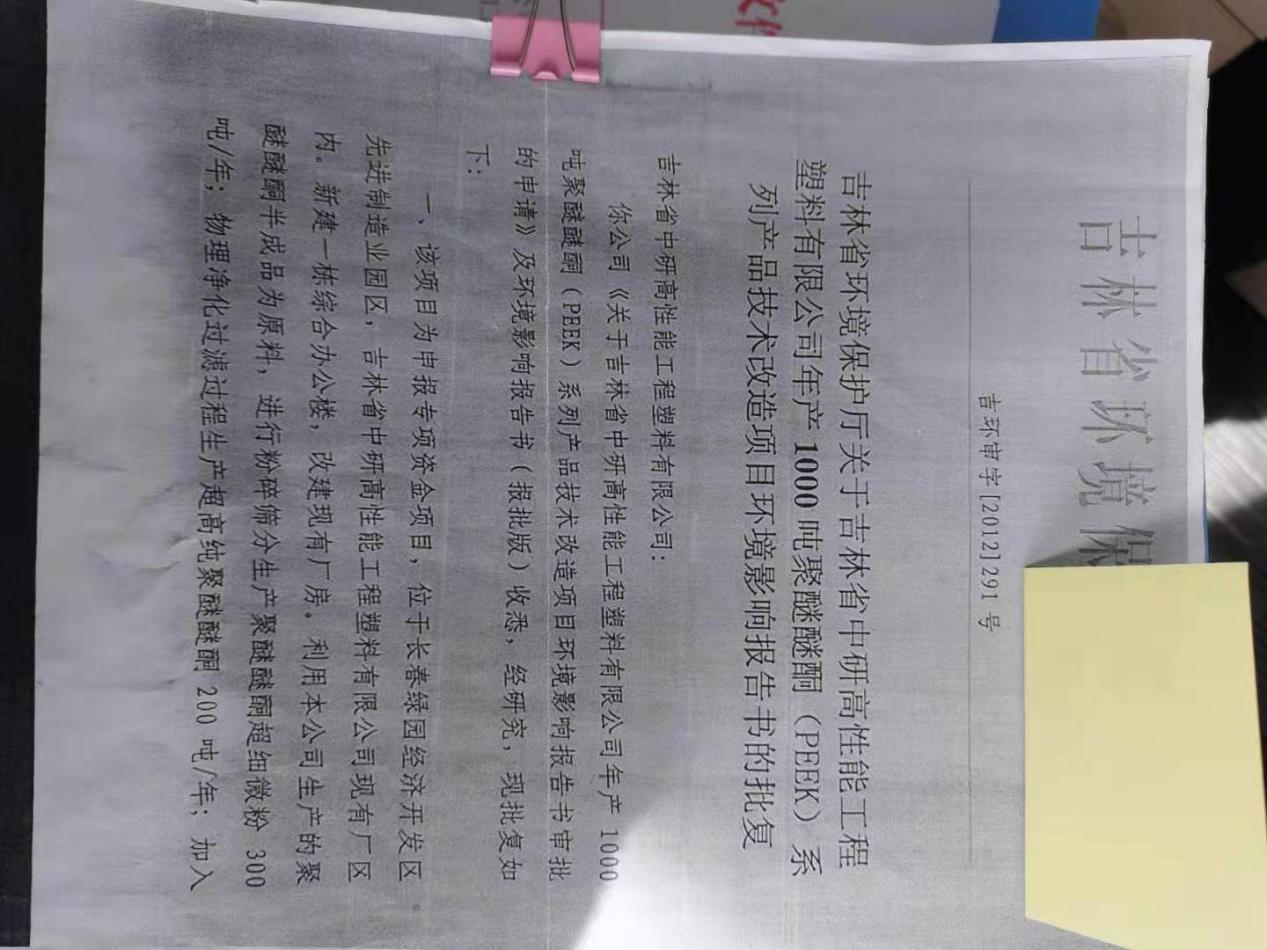 吉林省环境保
吉环审字[2012]291号
吉林省环境保护厅关于吉林省中研高性能工程
塑料有限公司年产1000吨聚醚醚酮（PEEK）系
列产品技术改造项目环境影响报告书的批复
吉林省中研高性能工程塑料有限公司：
你公司《关于吉林省中研高性能工程塑料有限公司年产1000
吨聚醚醚酮（PEEK）系列产品技术改造项目环境影响报告书审批
的申请》及环境影响报告书（报批版）收悉，经研究，现批复如
下：
一、该项目为申报专项资金项目，位于长春绿园经济开发区
先进制造业园区，吉林省中研高性能工程塑料有限公司现有厂区
内。新建一栋综合办公楼，改建现有厂房。利用本公司生产的聚
醚醚酮半成品为原料，进行粉碎筛分生产聚醚醚酮超细微粉300
吨/年；物理净化过滤过程生产超高纯聚醚醚酮200吨/年；加入